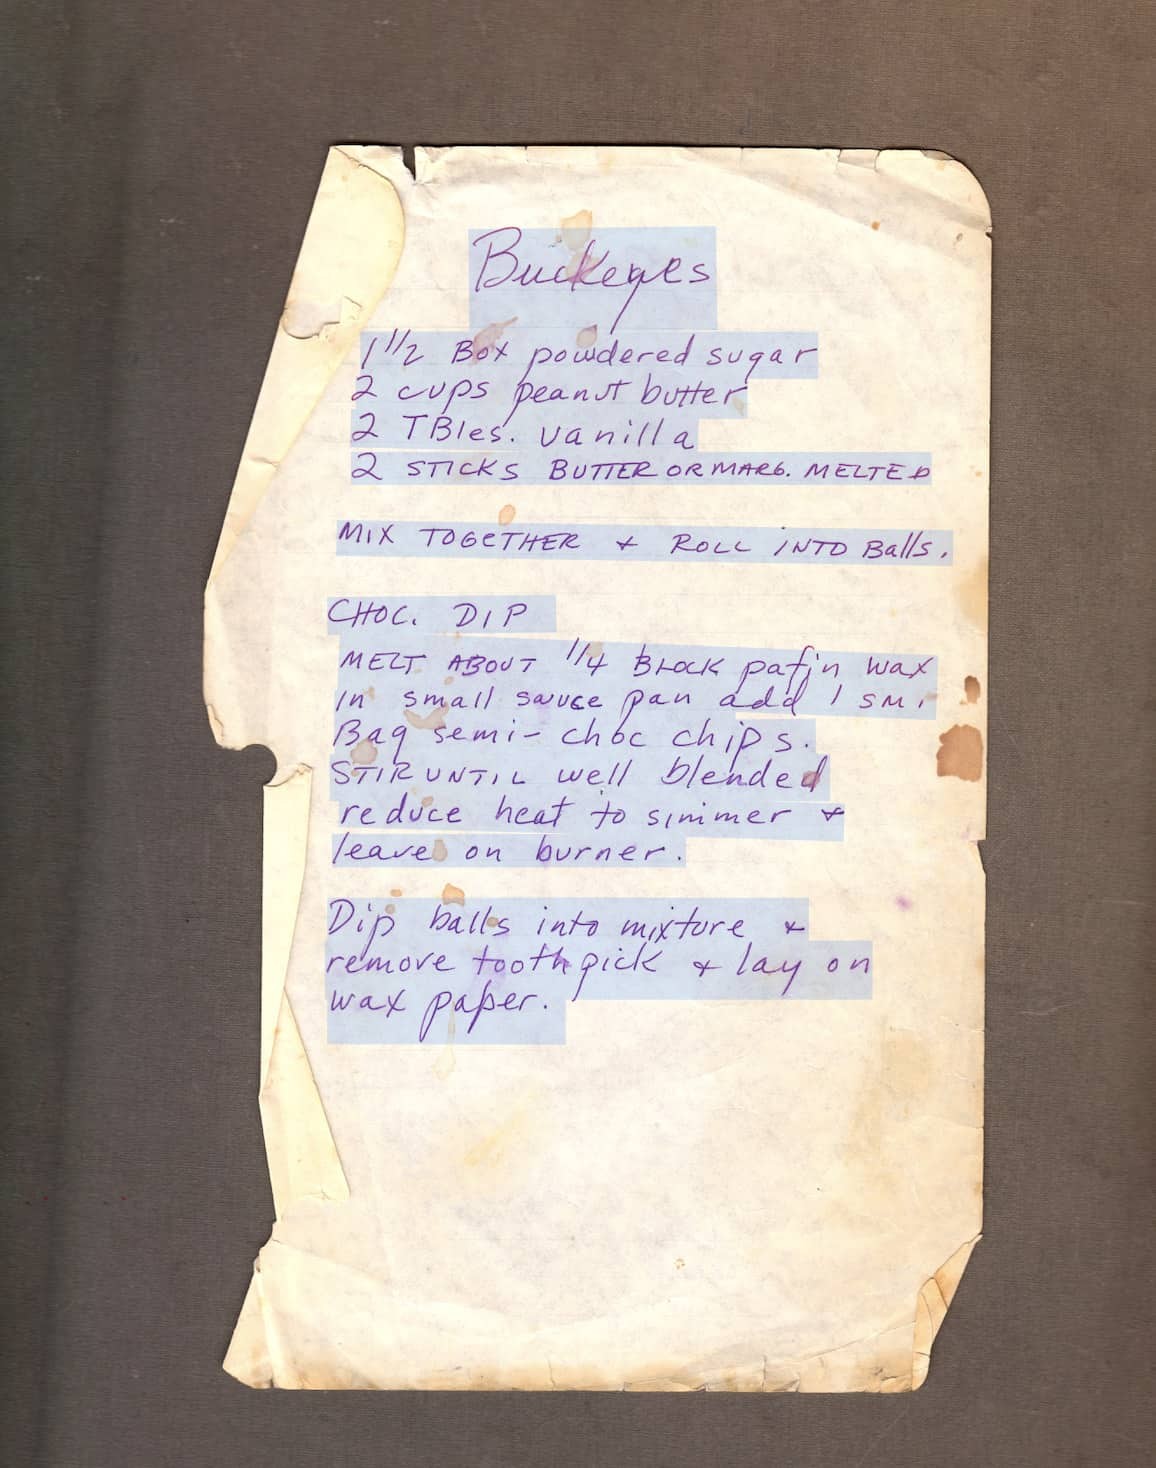 Buckeyes
1 1/2 Box powdered sugar
2 cups peanut butter
2 TBles. vanilla
2 STICKS BUTTER OR MARG. MELTED
MIX TOGETHER & ROLL INTO Balls.
CHOC. DIP
MELT ABOUT 1/4 BLOCK pafin wax
in small sauce pan add 1 sm.
Bag semi- choc chips.
STIR UNTIL well blended
reduce heat to simmer &
leave on burner.
Dip balls into mixture &
remove toothpick & lay on
wax paper.